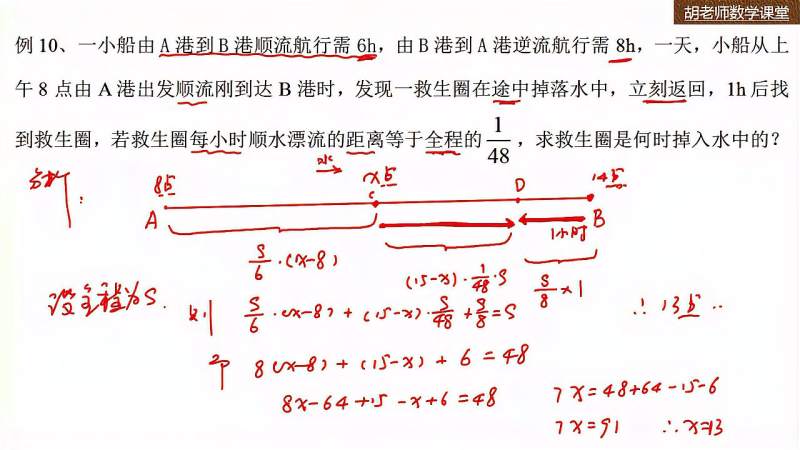 胡老师数学课堂
例 10、一小船由 A 港到 B 港顺流航行需 6h，由 B 港到 A 港逆流航行需 8h，一天，小船从上
午 8 点由 A 港出发顺流刚到达 B 港时，发现一救生圈在途中掉落水中，立刻返回，1h 后找
到救生圈，若救生圈每小时顺水漂流的距离等于全程的 1/48，求救生圈是何时掉入水中的？
分析：
8点 x点 14点
A C D B
1小时
S/6 ·(x-8) (15-x)·1/48·S S/8 ×1
设全程为S.
则 S/6 ·(x-8) + (15-x)·S/48 + S/8 = S ∴ 13点
即 8(x-8) + (15-x) + 6 = 48
8x-64+15-x+6=48 7x=48+64-15-6
7x=91 ∴x=13